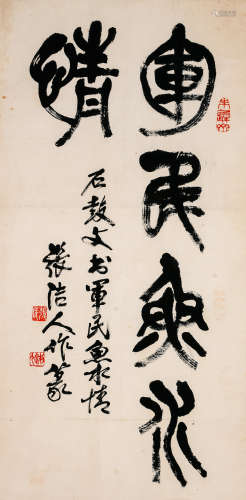 軍民魚水
情
石鼓文書軍民魚水情
張浩人作篆